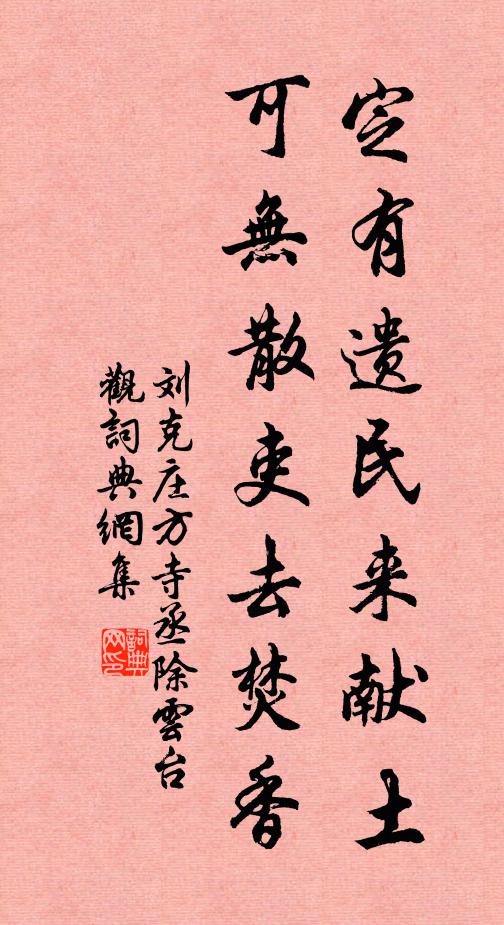 定有遗民来献土
可無散吏去焚香
刘克庄方寺丞除雲台
觀詞典網集
詞典
网印